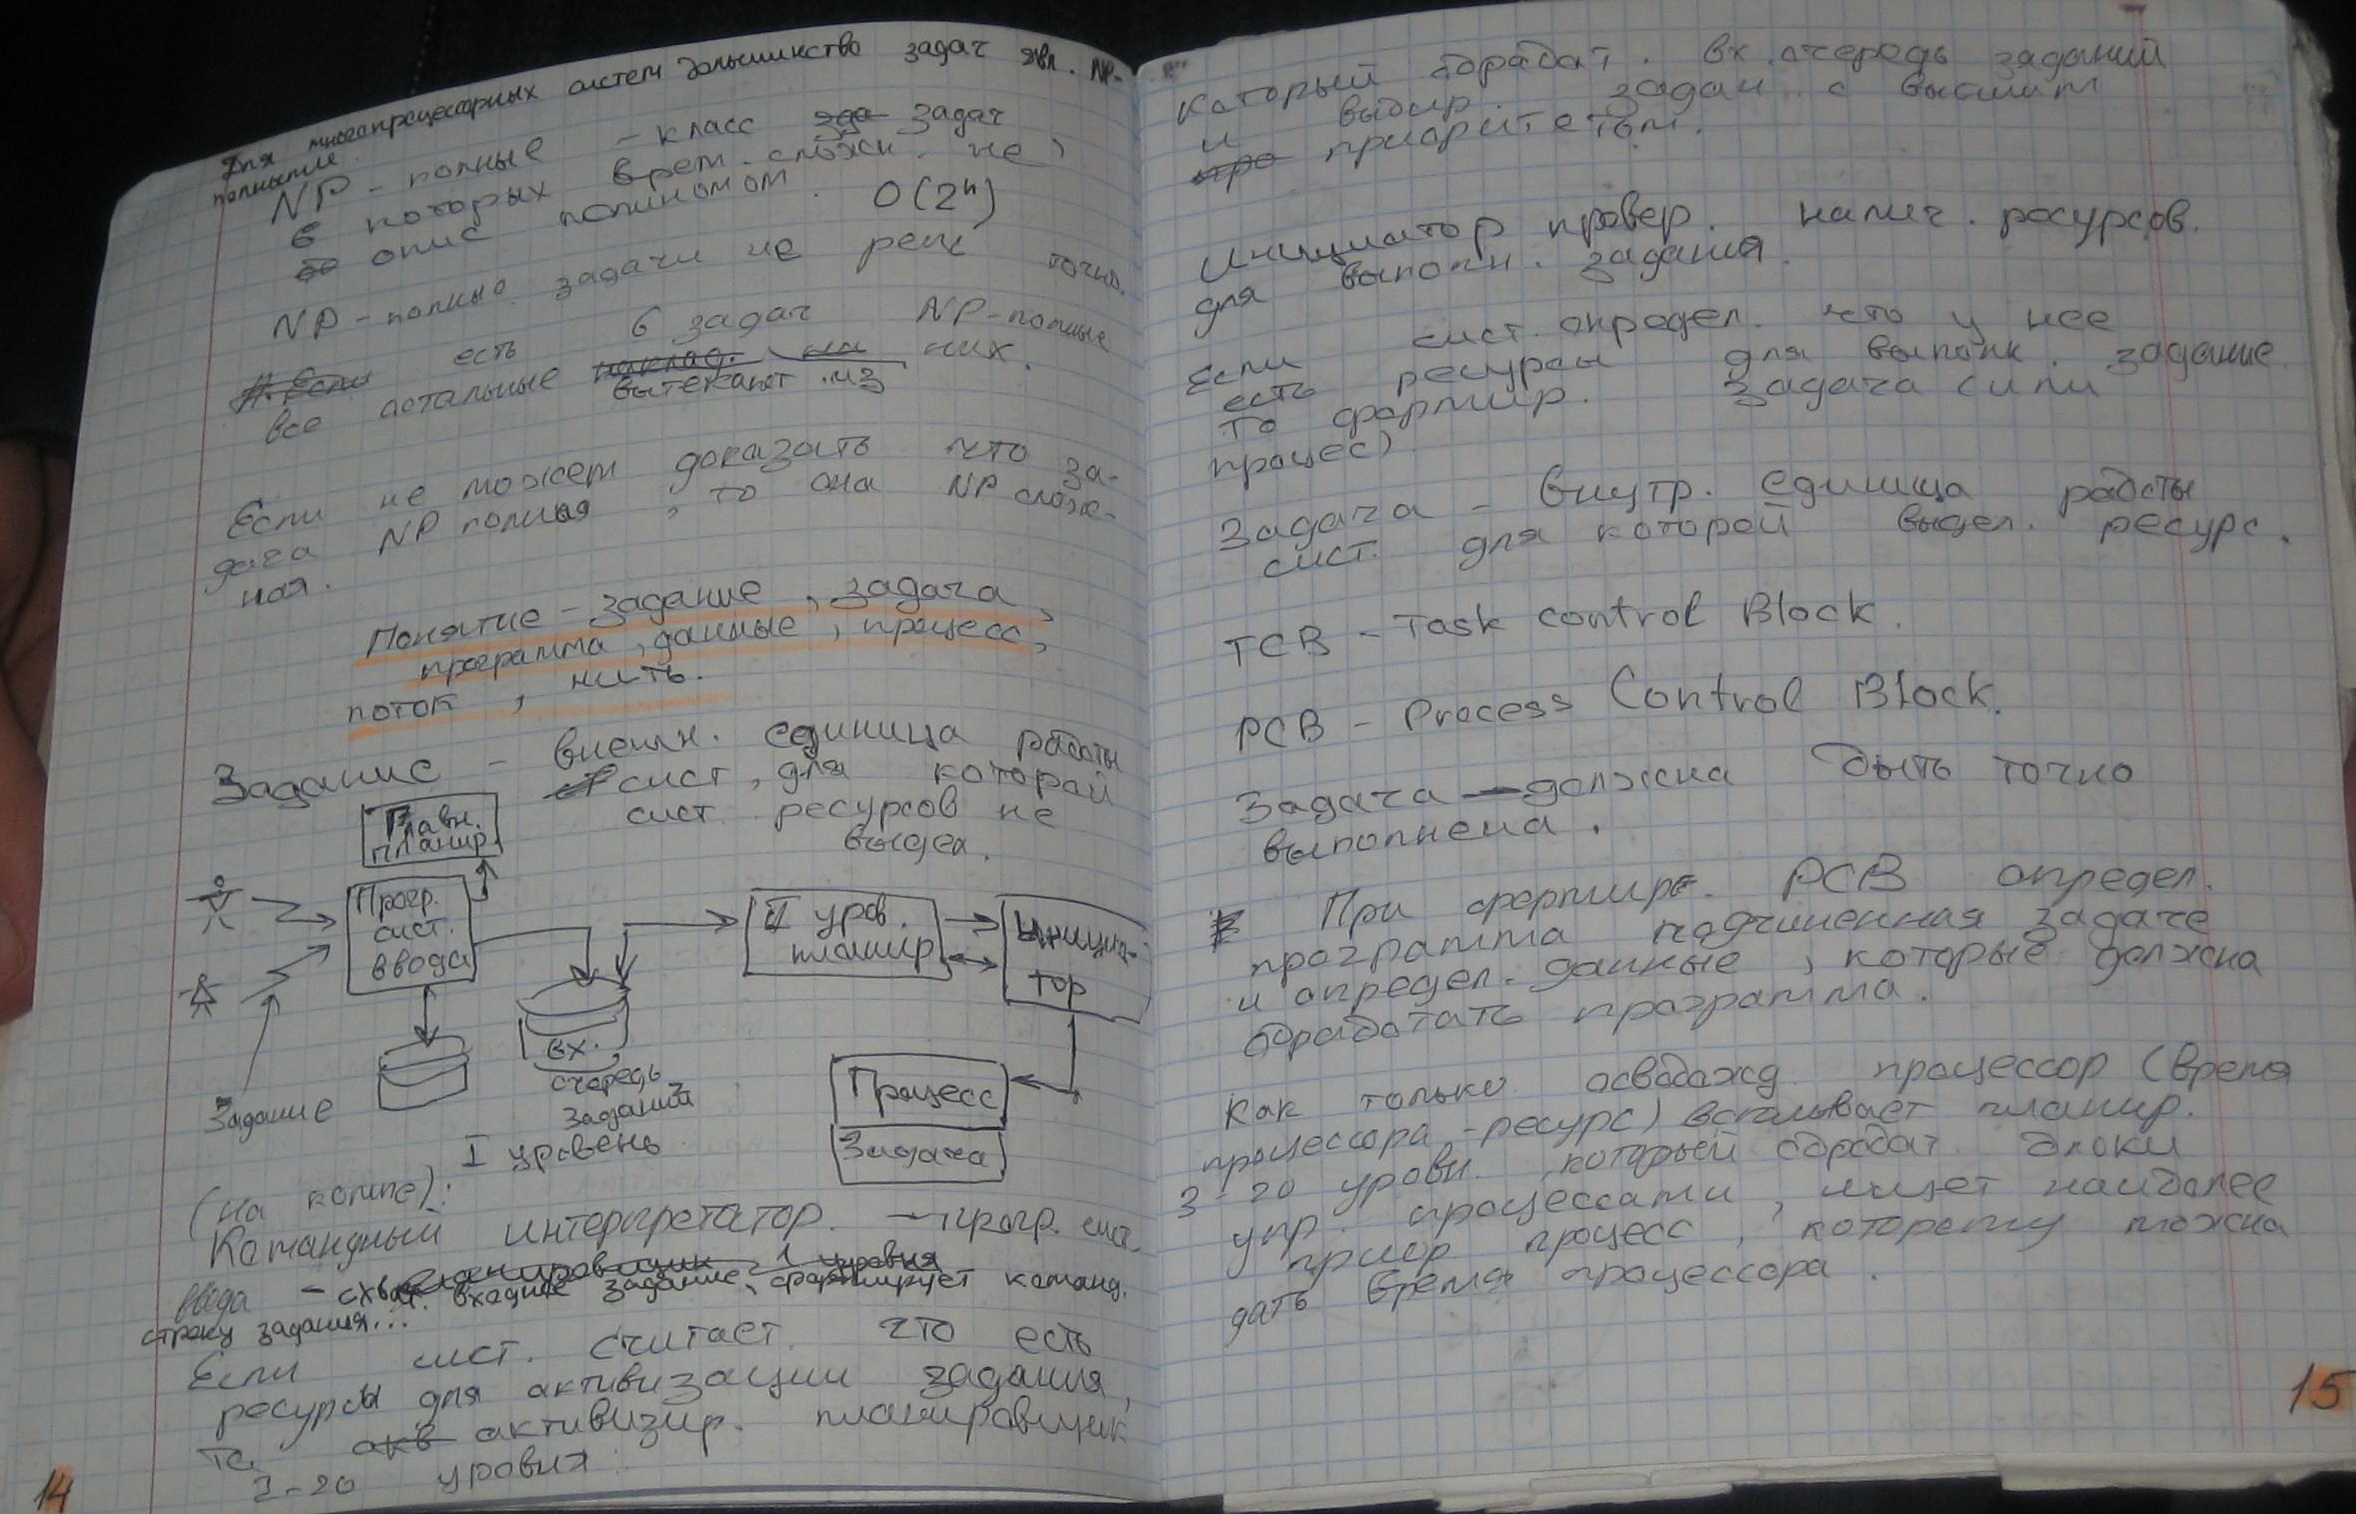 Для многопроцессорных систем большинство задач явл. NP-
полными.
NP - полные - класс задач
в которых врем. сложн. не
опис полиномом. O(2ⁿ)
NP - полные задачи не реш точно.
есть 6 задач NP-полные
все остальные вытекают из них.
Если не может доказать что за-
дача NP полная, то она NP слож-
ная.
Понятие - задание, задача,
программа, данные, процесс,
поток, нить.
Задание - внешн. единица работы
сист, для которой
сист. ресурсов не
выдел.
Главн.
планир.
Прогр.
сист.
ввода
II уров.
планир
Инициа-
тор
вх.
очередь
заданий
Процесс
Задача
Задание
I уровень
(на компе):
Командный интерпретатор. - прогр. сист.
ввода - схват. входные задание, формирует команд.
строку задания...
Если сист. считает что есть
ресурсы для активизации задания,
то активизир. планировщик
2-го уровня
14
который обрабат. вх. очередь заданий
и выбир. задан. с высшим
приоритетом.
Инициатор провер. налич. ресурсов
для выполн. задания.
Если сист. определ. что у нее
есть ресурсы для выполн. задание
то формир. задача (или
процес)
Задача - внутр. единица работы
сист. для которой выдел. ресурс.
TCB - Task control Block.
PCB - Process Control Block.
Задача - должна быть точно
выполнена.
При формир. PCB определ.
программа подчиненная задаче
и определ. данные, которые должна
обработать программа.
Как только освобожд. процессор (время
процессора - ресурс) всплывает планир.
3-го уровн. который обрабат блоки
упр. процессами, ищет наиболее
приор процесс, которому можно
дать время процессора.
15